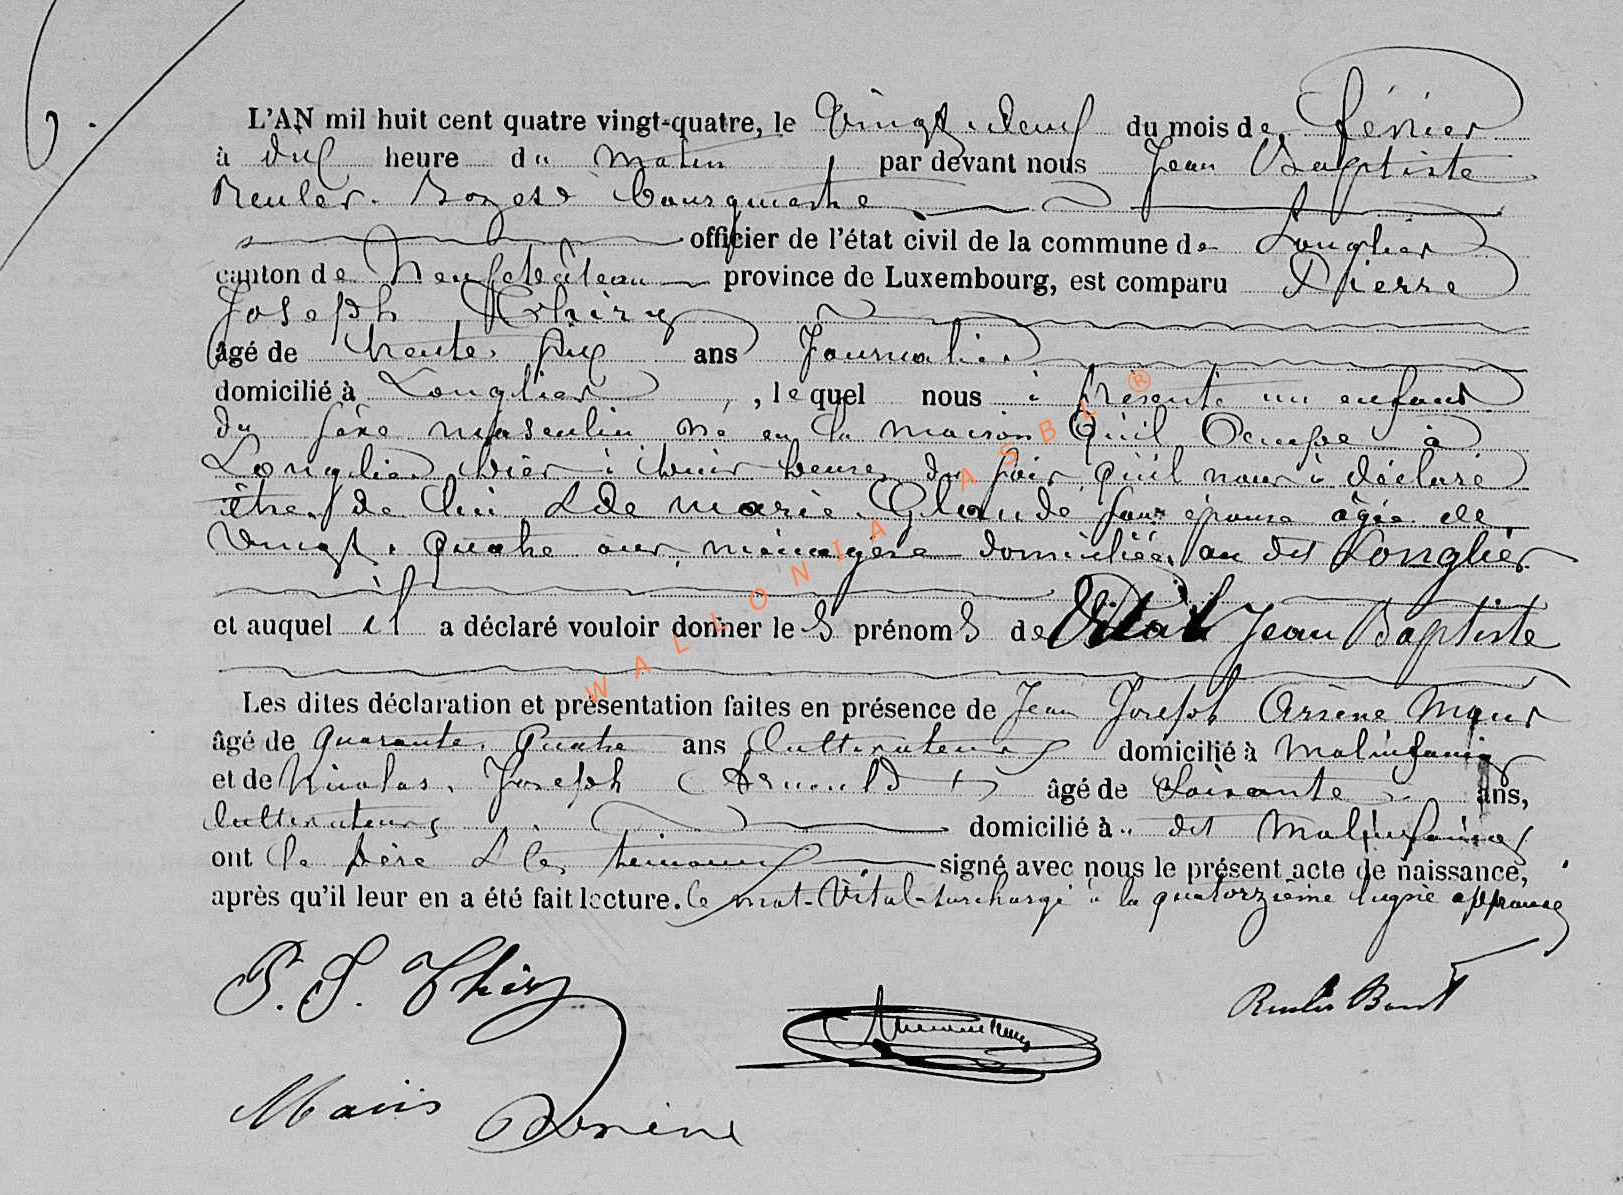 6.
L'AN mil huit cent quatre vingt-quatre, le vingt deux du mois de février
à dix heure du matin par devant nous Jean Baptiste
Reuler. Bourgmestre
officier de l'état civil de la commune de Longlier
canton de Neufchâteau province de Luxembourg, est comparu Pierre
Joseph Thiry
âgé de trente six ans Journalier
domicilié à Longlier, lequel nous à présenté un enfant
du sèxe masculin né en la maison qu'il occupe à
Longlier hier à huit heures du soir qu'il nous à déclaré
être de lui & de marie Glaude son épouse âgée de
vingt quatre ans ménagère domiciliée au dit Longlier
et auquel il a déclaré vouloir donner les prénoms de Vital Jean Baptiste
Les dites déclaration et présentation faites en présence de Jean Joseph Arsène
âgé de quarante quatre ans Cultivateur domicilié à Molinfaing
et de Nicolas Joseph âgé de soixante ans,
Cultivateur domicilié à dit Molinfaing
ont le père & les témoins signé avec nous le présent acte de naissance,
après qu'il leur en a été fait lecture. le mot Vital surchargé à la quatorzième ligne approuvé
P. J. Thiry
Arsène
WALLONIA ASBL ®